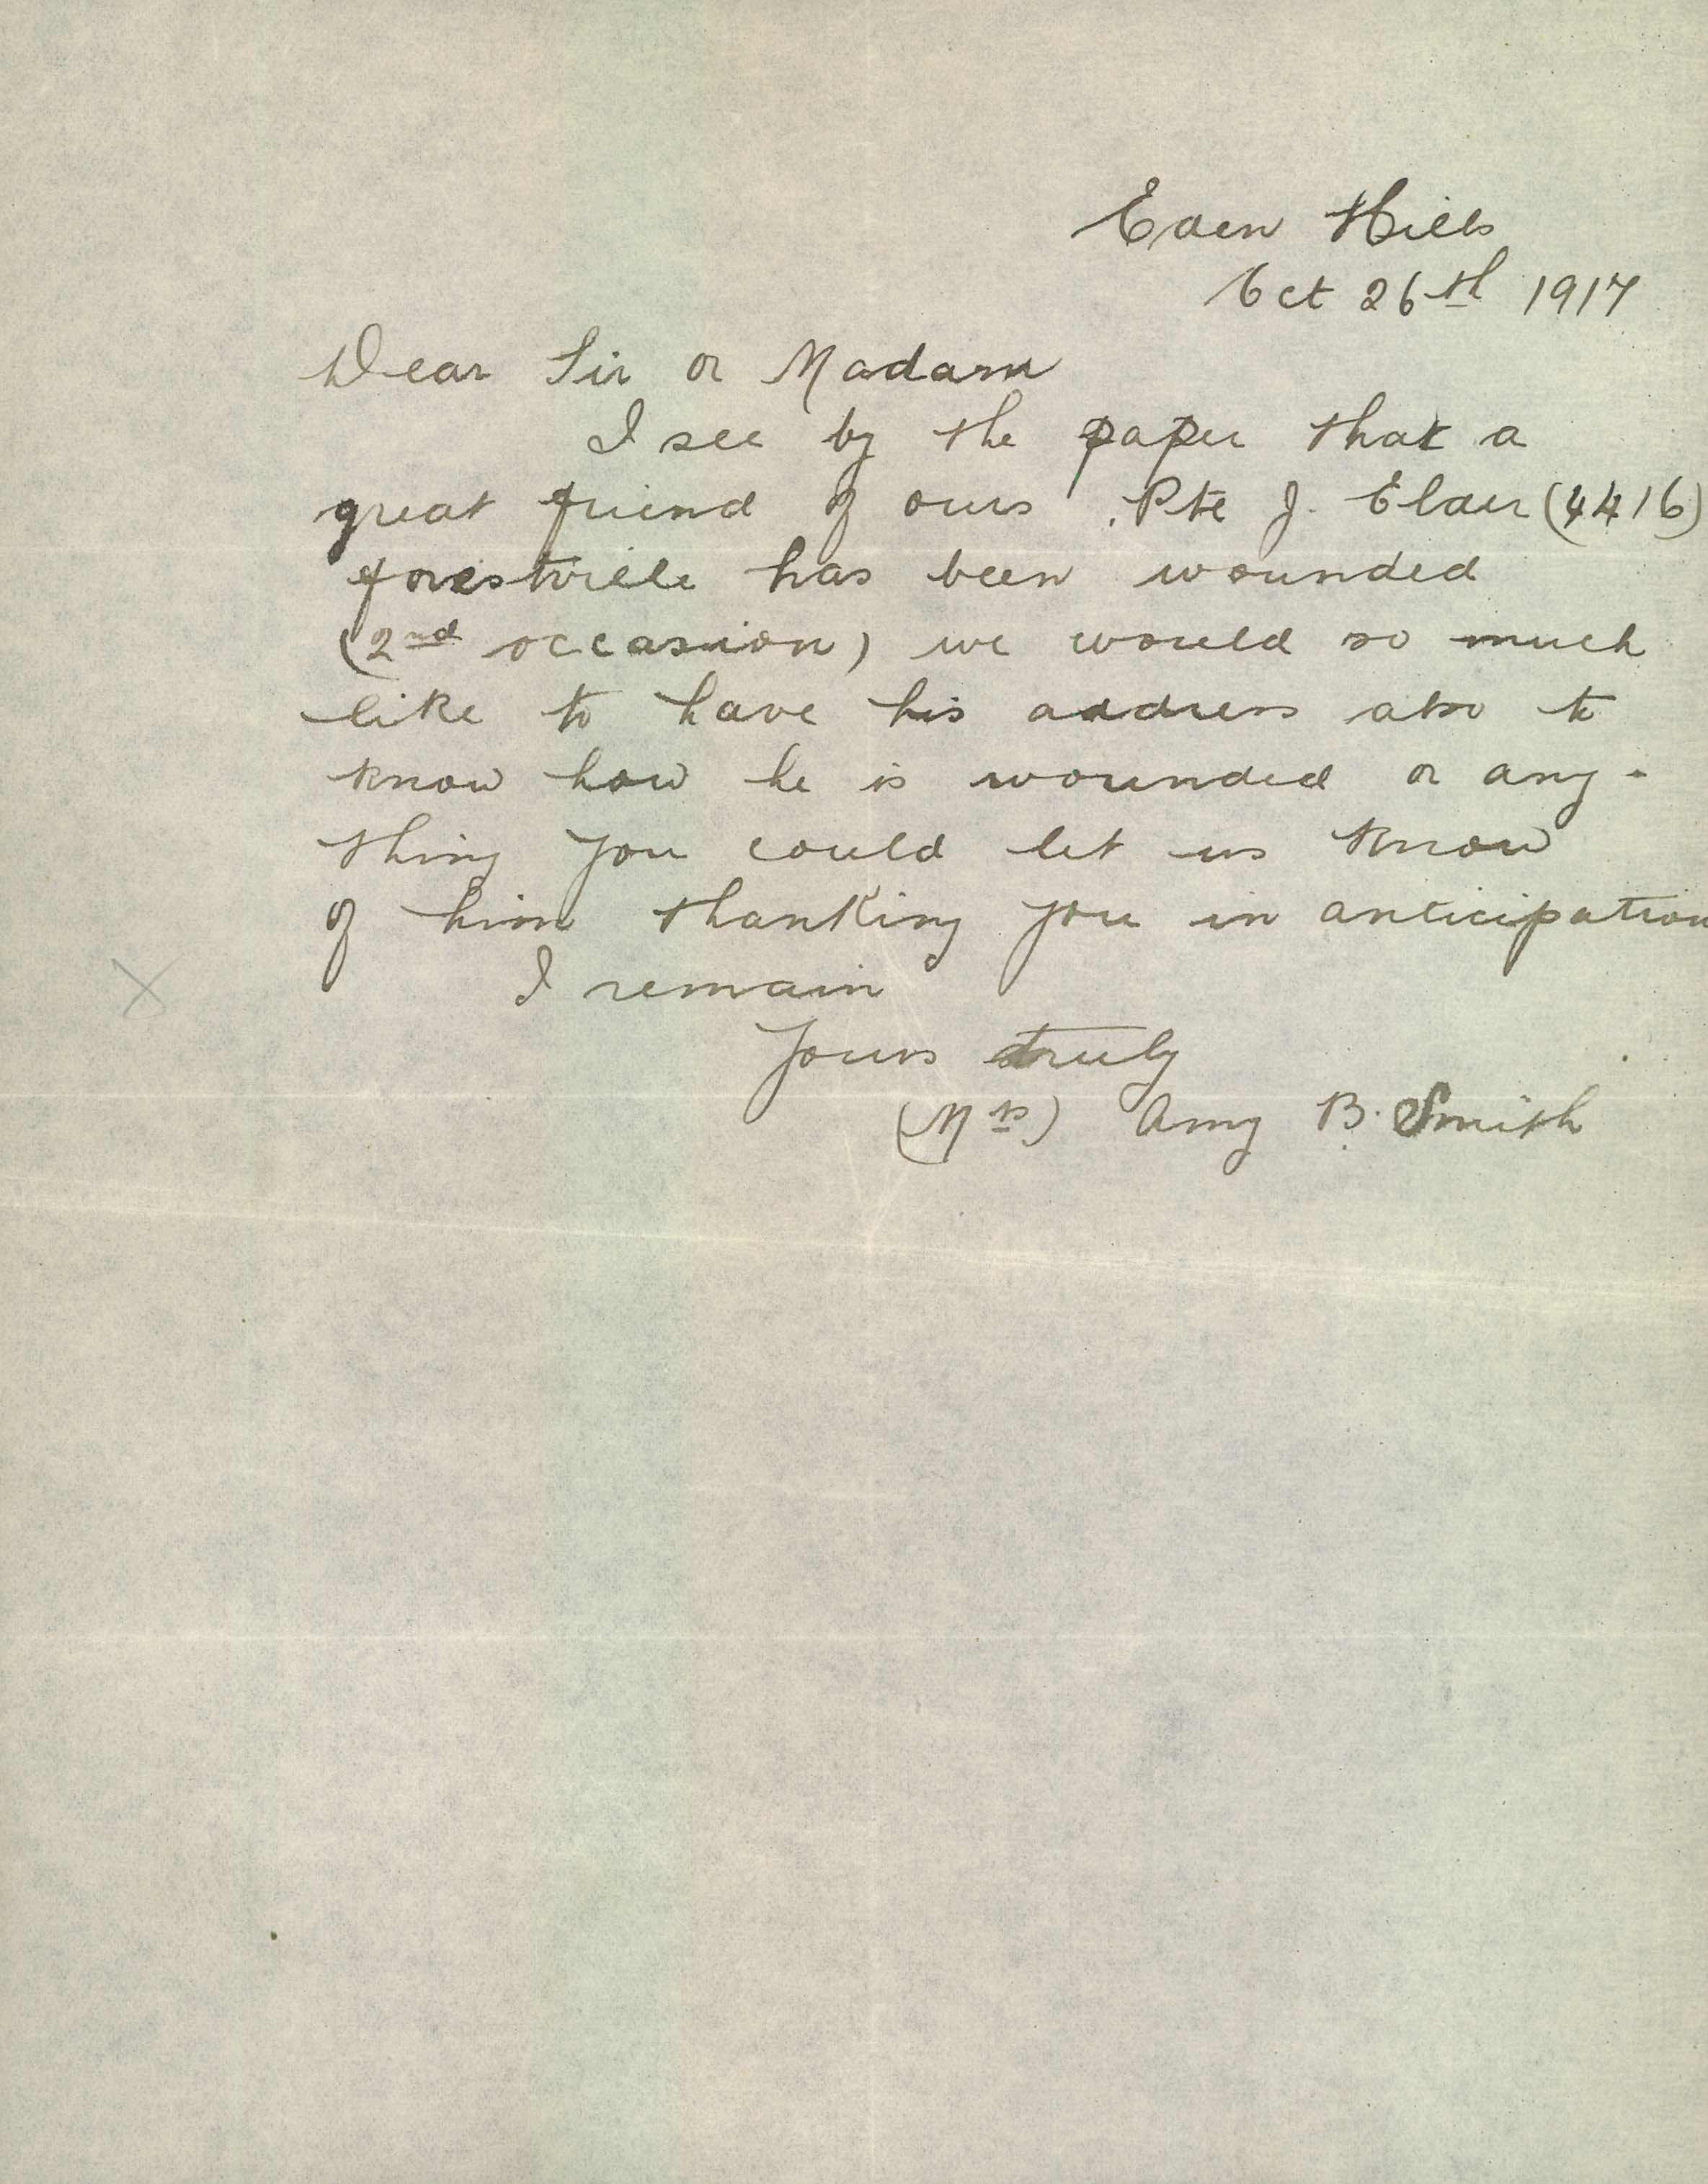 Eden Hills
Oct 26th 1917
Dear Sir or Madam
I see by the paper that a
great friend of ours Pte J. Elair (4416)
forestville has been wounded
(2nd occasion) we would so much
like to have his address also to
know how he is wounded or any-
thing you could let us know
of him thanking you in anticipation
I remain
Yours truly
(Mrs) Amy B. Smith